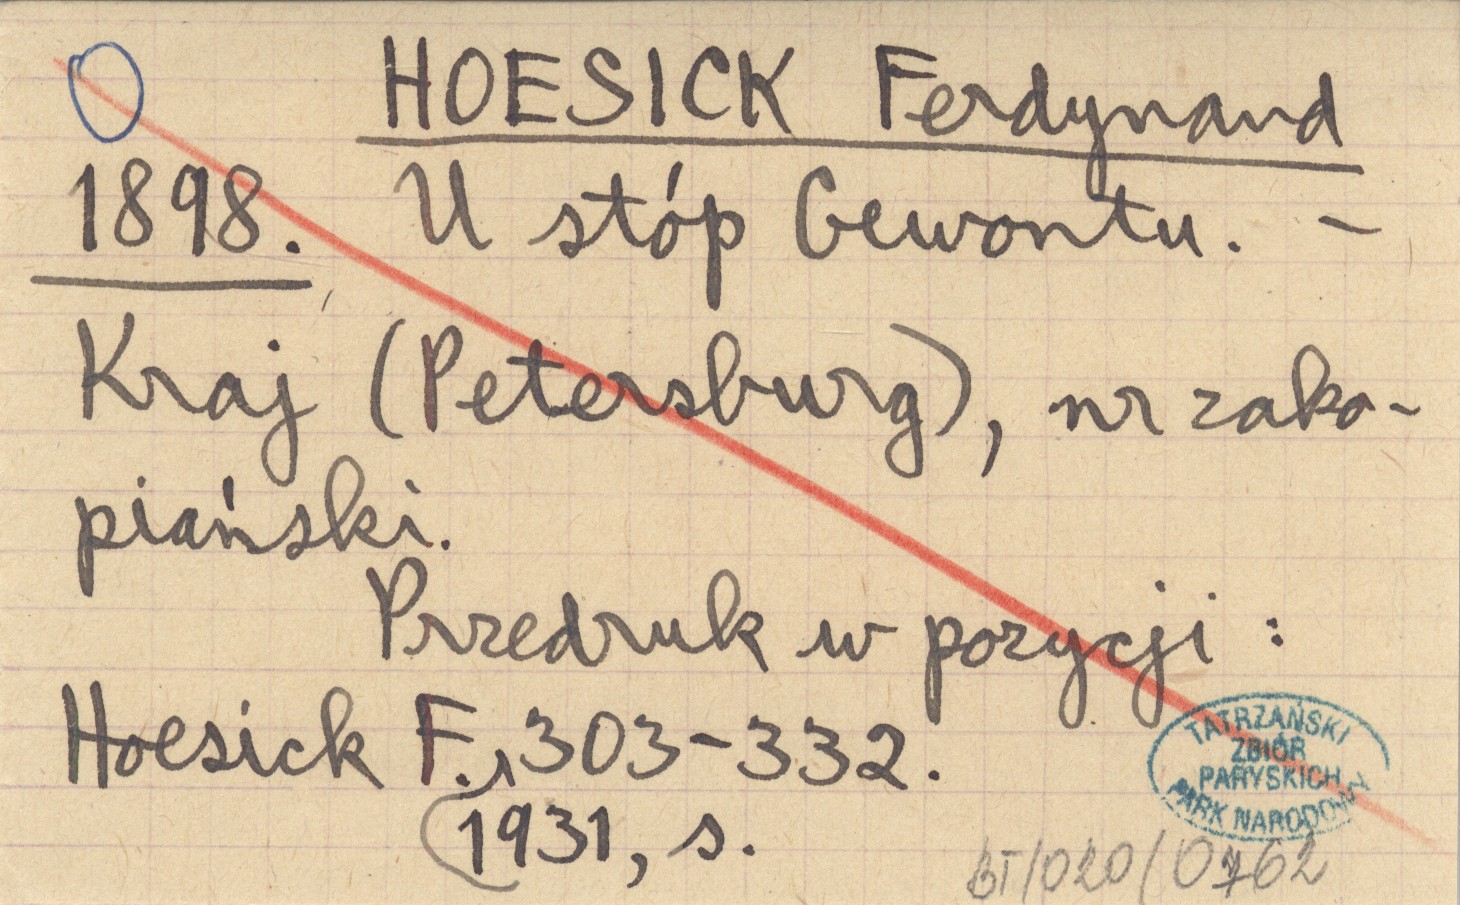 HOESICK Ferdynand
1898. U stóp Gewontu. -
Kraj (Petersburg), nr zako-
piański.
Przedruk w pozycji :
Hoesick F., 303-332.
1931, s.
TATRZAŃSKI
ZBIÓR
PARYSKICH
PARK NARODOWY
BT/020/0762